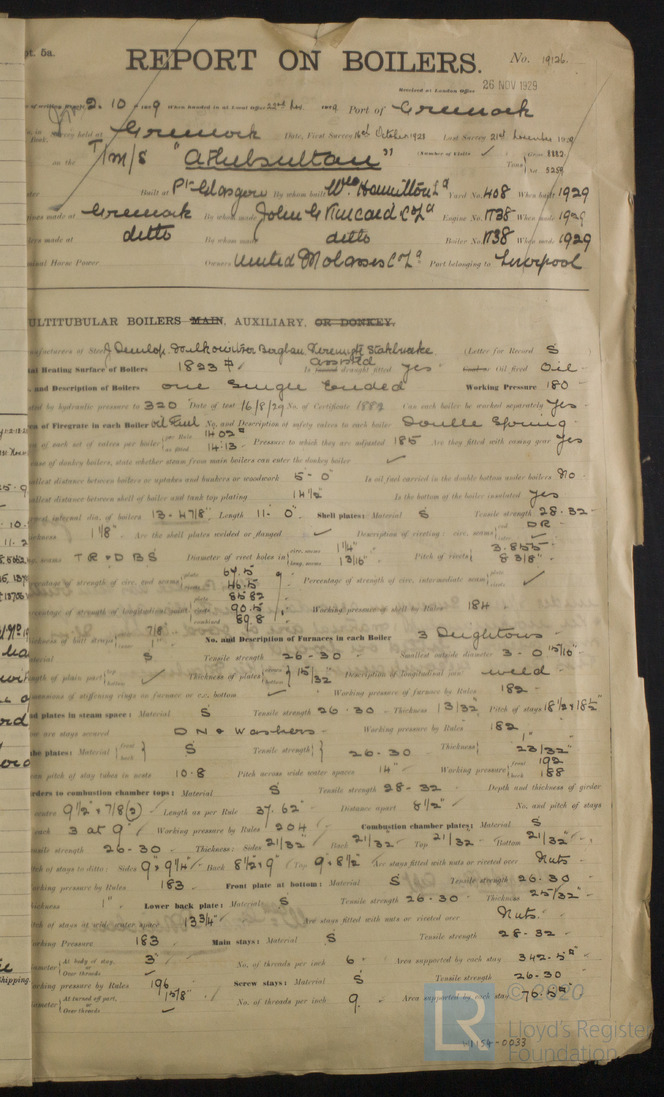 pt. 5a.
REPORT ON BOILERS.
No. 19126.
Received at London Office 26 NOV 1929
2. 10 19 29 When handed in at Local Office 1929 Port of Greenock
Survey held at Greenock Date, First Survey 16th October 1928 Last Survey 21st November 1929
on the T/m/s "Athelsultan" (Number of Visits ✓) Tons Gross Net 5259
Built at Pt Glasgow By whom built Wm Hamilton Ld Yard No. 408 When built 1929
made at Greenock By whom made John G Kincaid & Co Ld Engine No. When made 1929
made at ditto By whom made ditto Boiler No. When made 1929
Horse Power Owners United Molasses Co Ld Port belonging to Liverpool
ULTITUBULAR BOILERS MAIN, AUXILIARY, OR DONKEY.
(Letter for Record S
Heating Surface of Boilers 1823 Is forced draught fitted assisted yes Oil fired Oil
and Description of Boilers One Single Ended Working Pressure 180
by hydraulic pressure to 320 Date of test 16/8/29 No. of Certificate 1882 Can each boiler be worked separately Yes
of Firegrate in each Boiler Oil Fuel No. and Description of safety valves to each boiler Double Spring
of each set of valves per boiler 14.02 14.13 Pressure to which they are adjusted 185 Are they fitted with easing gear Yes
case of donkey boilers, state whether steam from main boilers can enter the donkey boiler ✓
distance between boilers or uptakes and bunkers or woodwork 5-0" Is oil fuel carried in the double bottom under boilers No
distance between shell of boiler and tank top plating 14½" Is the bottom of the boiler insulated yes
internal dia. of boilers 13-4 7/8" Length 11-0" Shell plates: Material S Tensile strength 28-32
1 1/8" Are the shell plates welded or flanged ✓ Description of riveting: circ. seams DR
seams TR & DBS Diameter of rivet holes in circ. seams 1¼" long. seams 1 3/16" Pitch of rivets 3.855" 8 3/8"
of strength of circ. end seams 64.5 46.5 Percentage of strength of circ. intermediate seam ✓
of strength of longitudinal joint 85.82 90.5 89.8 Working pressure of shell by Rules 184
of butt straps 7/8" 1" No. and Description of Furnaces in each Boiler 3 Deightons
S Tensile strength 26-30 Smallest outside diameter 3-0 15/16"
of plain part Thickness of plates 15/32" Description of longitudinal joint weld
of stiffening rings on furnace or c.c. bottom ✓ Working pressure of furnace by Rules 182
plates in steam space: Material S Tensile strength 26-30 Thickness 1 3/32 Pitch of stays 18½ x 18½"
are stays secured D N & Washers Working pressure by Rules 182
plates: Material front back S Tensile strength 26-30 Thickness 1" 23/32"
pitch of stay tubes in nests 10.8 Pitch across wide water spaces 14" Working pressure front 192 back 188
to combustion chamber tops: Material S Tensile strength 28-32 Depth and thickness of girder
9½" x 7/8 (2) Length as per Rule 37.62" Distance apart 8½" No. and pitch of stays
each 3 at 9" Working pressure by Rules 204 Combustion chamber plates: Material S
strength 26-30 Thickness: Sides 21/32 Back 21/32" Top 21/32" Bottom 21/32"
of stays to ditto: Sides 9" x 9¼" Back 8½ x 9" Top 9 x 8½" Are stays fitted with nuts or riveted over Nuts
pressure by Rules 183 Front plate at bottom: Material S Tensile strength 26-30
1" Lower back plate: Material S Tensile strength 26-30 Thickness 25/32"
of stays at wide water space 13¾" Are stays fitted with nuts or riveted over Nuts
Pressure 183 Main stays: Material S Tensile strength 28-32
At body of stay, or Over threads 3" No. of threads per inch 6 Area supported by each stay 342.5
pressure by Rules 196 Screw stays: Material S Tensile strength 26-30
At turned off part, or Over threads 1 5/8" No. of threads per inch 9 Area supported by each stay 76.5
© 2020
LR
Lloyd's Register
Foundation
1154-0033